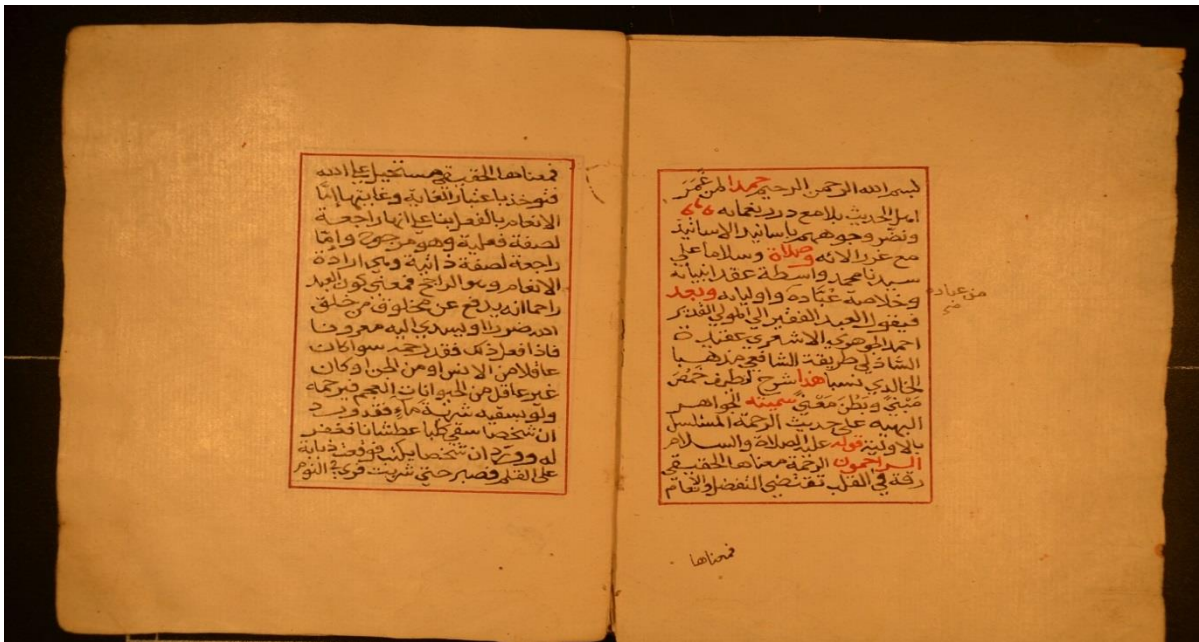 بسم الله الرحمن الرحيم حمدا لمن غمر
اهل الحديث بلامع درر نعمائه
ونضر وجوههم باسانيد الاسانيد
مع غرر الائه وصلاة وسلاما على
سيدنا محمد واسطة عقد انبيائه
وخلاصة عباده واوليائه وبعد
من عباده
فيقول العبد الفقير الي المولي القدير
احمد الجوهري الاشعري عقيدة
الشاذلي طريقة الشافعي مذهبا
الخالدي نسبا هذا شرح لطيف خمص
مبني وبطن معني سميته الجواهر
البهيه على حديث الرحمة المسلسل
بالاولية قوله عليه الصلاة والسلام
الراحمون الرحمة معناها الحقيقي
رقة في القلب تقتضي التفضل والانعام
فمعناها
فمعناها الحقيقي مستحيل على الله
فتوخذ باعتبار الغاية وغايتها اما
الانعام بالفعل بناء على انها راجعة
لصفة فعلية وهو مرجوح واما
راجعة لصفة ذاتية وهي ارادة
الانعام وهو الراجح فمعني كون العبد
راحما انه يدفع عن مخلوق من خلق
الله ضررا او يسدي اليه معروفا
فاذا فعل ذلك فقد رحمه سوا كان
عاقلا من الانس او من الجن او كان
غير عاقل من الحيوانات العجم فيرحمه
ولو بسقيه شربة ماء فقد ورد
ان شخصا سقي كلبا عطشانا فغفر
له وورد ان شخصا يكتب فوقفت ذبابة
على القلم فصبر حتي شربت فروي في النوم